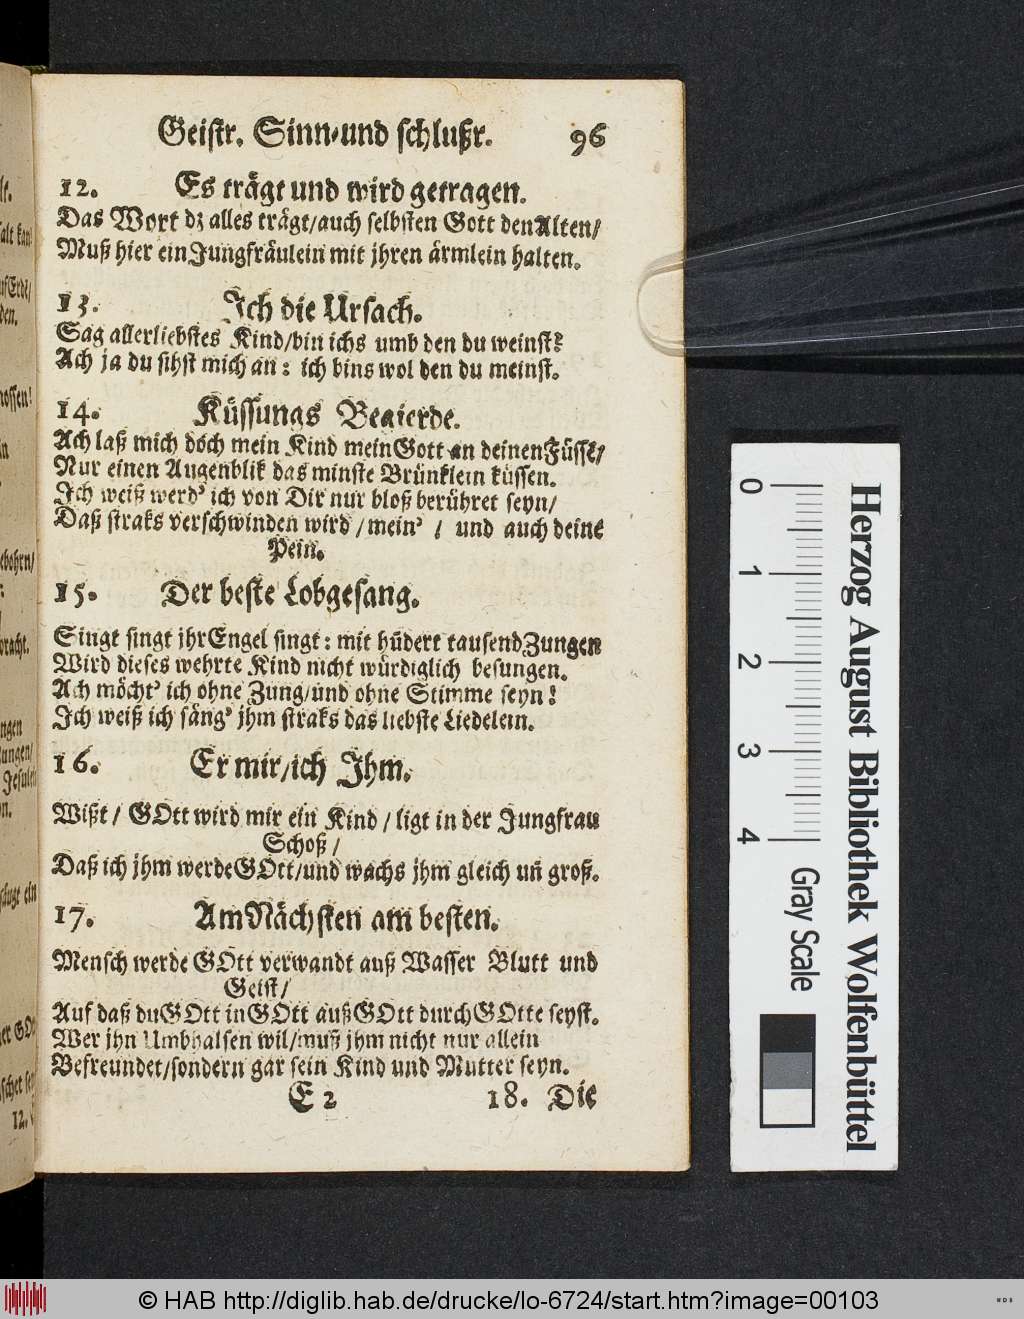 Geistr. Sinn-und schlußr. 96
12. Es trägt und wird getragen.
Das Wort dz alles trägt/auch selbsten Gott den Alten/
Muß hier ein Jungfräulein mit jhren ärmlein halten.
13. Ich die Ursach.
Sag allerliebstes Kind/bin ichs umb den du weinst?
Ach ja du sihst mich an: ich bins wol den du meinst.
14. Küssungs Begierde.
Ach laß mich doch mein Kind mein Gott an deinen Füssē/
Nur einen Augenblik das minste Brünklein küssen.
Ich weiß werd' ich von Dir nur bloß berühret seyn/
Daß straks verschwinden wird/mein' / und auch deine
Pein.
15. Der beste Lobgesang.
Singt singt jhr Engel singt: mit hūdert tausend Zungen
Wird dieses wehrte Kind nicht würdiglich besungen.
Ach möcht' ich ohne Zung/und ohne Stimme seyn!
Ich weiß ich säng' jhm straks das liebste Liedelein.
16. Er mir/ich Ihm.
Wißt/ GOtt wird mir ein Kind/ligt in der Jungfrau
Schoß/
Daß ich jhm werde GOtt/und wachs jhm gleich uñ groß.
17. Am Nächsten am besten.
Mensch werde GOtt verwandt auß Wasser Blutt und
Geist/
Auf daß du GOtt in GOtt auß GOtt durch GOtte seyst.
Wer jhn Umbhalsen wil/muß jhm nicht nur allein
Befreundet/sondern gar sein Kind und Mutter seyn.
E 2 18. Die
Herzog August Bibliothek Wolfenbüttel
0 1 2 3 4
Gray Scale
© HAB http://diglib.hab.de/drucke/lo-6724/start.htm?image=00103